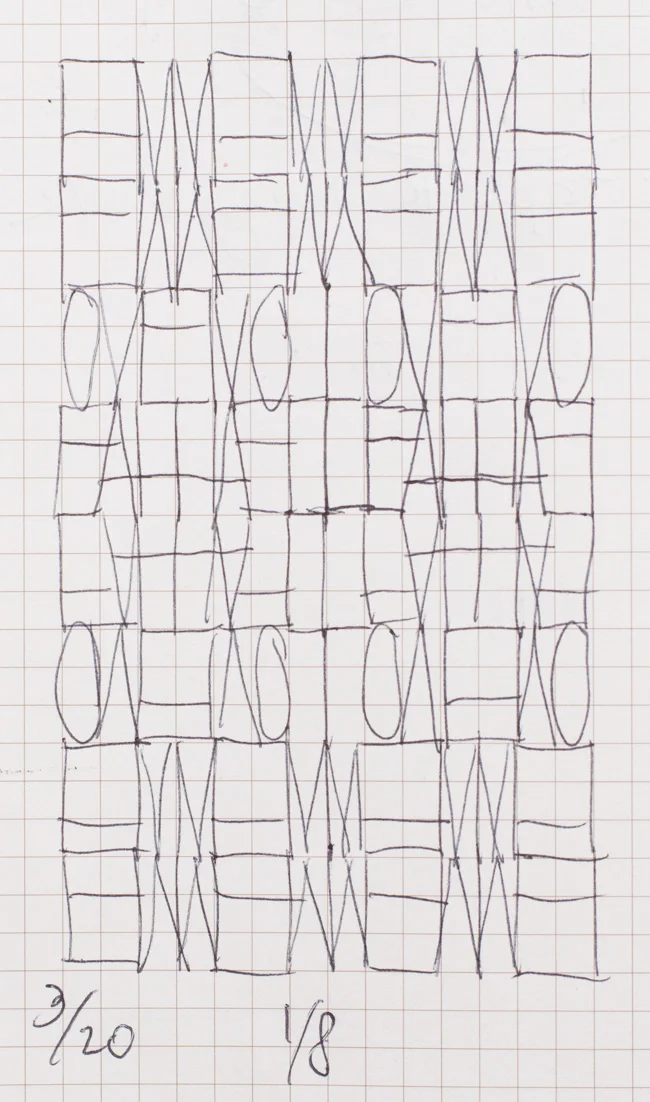 3/20 1/8